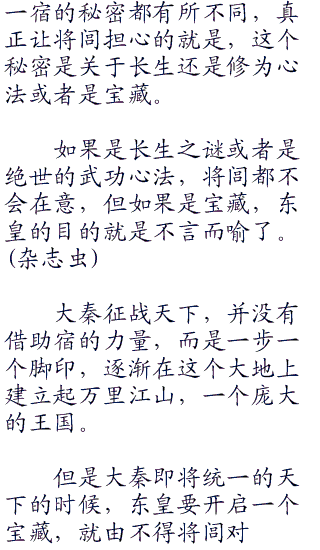 一宿的秘密都有所不同，真
正让将闾担心的就是，这个
秘密是关于长生还是修为心
法或者是宝藏。
如果是长生之谜或者是
绝世的武功心法，将闾都不
会在意，但如果是宝藏，东
皇的目的就是不言而喻了。
(杂志虫)
大秦征战天下，并没有
借助宿的力量，而是一步一
个脚印，逐渐在这个大地上
建立起万里江山，一个庞大
的王国。
但是大秦即将统一的天
下的时候，东皇要开启一个
宝藏，就由不得将闾对